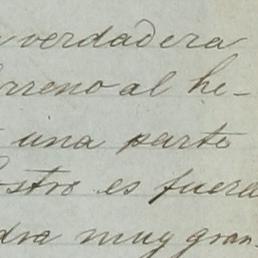 verdadera
rreno al he-
una parte
stro es fuera
dra muy gran-